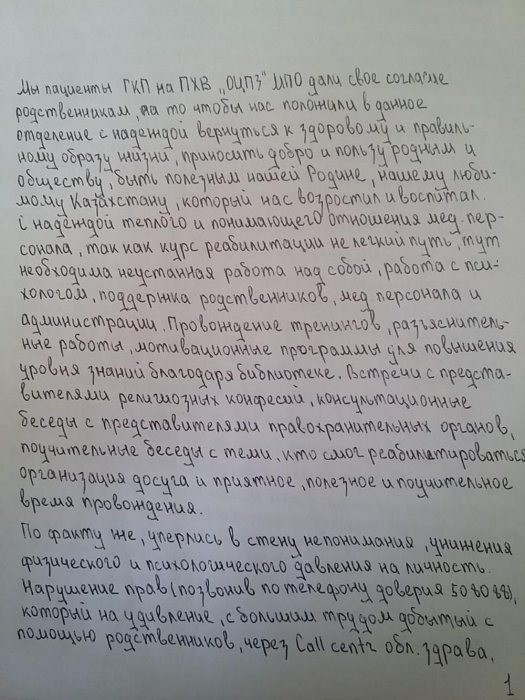 Мы пациенты ГКП на ПХВ „ОЦПЗ" МПО дали свое согласие
родственникам, на то чтобы нас положили в данное
отделение с надеждой вернуться к здоровому и правиль-
ному образу жизни, приносить добро и пользу родным и
обществу, быть полезным нашей Родине, нашему люби-
мому Казахстану, который нас возростил и воспитал.
С надеждой теплого и понимающего отношения мед. пер-
сонала, так как курс реабилитации не легкий путь, тут
необходима неустанная работа над собой, работа с пси-
хологом, поддержка родственников, мед. персонала и
администрации. Провождение тренингов, разъяснитель-
ные работы, мотивационные программы для повышения
уровня знаний благодаря библиотеке. Встречи с предста-
вителями религиозных конфесий, консультационные
беседы с представителями правохранительных органов,
поучительные беседы с теми, кто смог реабилитироваться
организация досуга и приятное, полезное и поучительное
время провождения.
По факту же, уперлись в стену непонимания, унижения
физического и психологического давления на личность.
Нарушение прав (позвонив по телефону доверия 508088),
который на удивление, с большим трудом добытый с
помощью родственников, через Call centr обл. здрава,
1